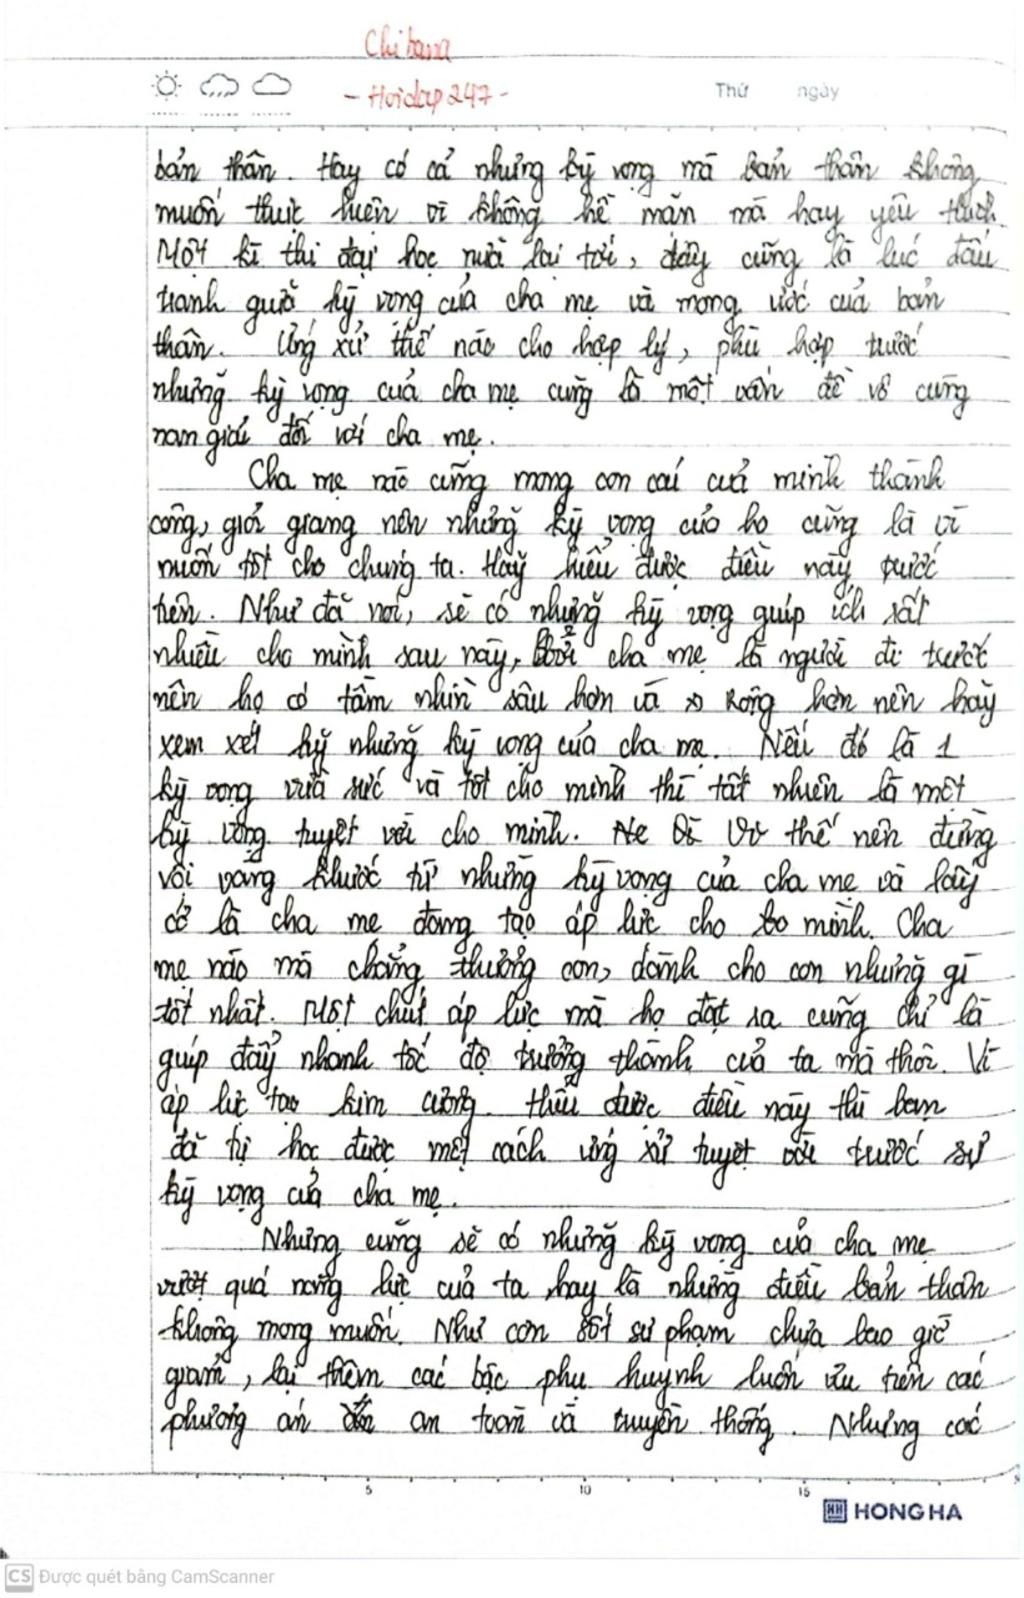 Chitana
- Hoidap247 -
Thứ ngày
bản thân. Hay có cả những kỳ vọng mà bản thân không
muốn thực hiện vì không hề mặn mà hay yêu thích
Một kì thi đại học nữa lại tới, đây cũng là lúc đấu
tranh giữa kỳ vọng của cha mẹ và mong ước của bản
thân. Ứng xử thế nào cho hợp lý, phù hợp trước
những kỳ vọng của cha mẹ cũng là một vấn đề vô cùng
nan giải đối với cha mẹ.
Cha mẹ nào cũng mong con cái của mình thành
công, giỏi giang nên những kỳ vọng của họ cũng là vì
muốn tốt cho chúng ta. Hãy hiểu được điều này trước
tiên. Như đã nói, sẽ có những kỳ vọng giúp ích rất
nhiều cho mình sau này, bởi cha mẹ là người đi trước
nên họ có tầm nhìn sâu hơn và rộng hơn nên hãy
xem xét kỹ những kỳ vọng của cha mẹ. Nếu đó là 1
kỳ vọng vừa sức và tốt cho mình thì tất nhiên là một
kỳ vọng tuyệt vời cho mình. Vì thế nên đừng
vội vàng khước từ những kỳ vọng của cha mẹ và lấy
cớ là cha mẹ đang tạo áp lực cho mình. Cha
mẹ nào mà chẳng thương con, dành cho con những gì
tốt nhất. Một chút áp lực mà họ đặt ra cũng chỉ là
giúp đẩy nhanh tốc độ trưởng thành của ta mà thôi. Vì
áp lực tạo kim cương. Hiểu được điều này thì bạn
đã tự học được một cách ứng xử tuyệt vời trước sự
kỳ vọng của cha mẹ.
Nhưng cũng sẽ có những kỳ vọng của cha mẹ
vượt quá năng lực của ta hay là những điều bản thân
không mong muốn. Như cơn sốt sư phạm chưa bao giờ
giảm, lại thêm các bậc phụ huynh luôn ưu tiên các
phương án an toàn và truyền thống. Nhưng các
5 10 15
HONG HA
CS Được quét bằng CamScanner